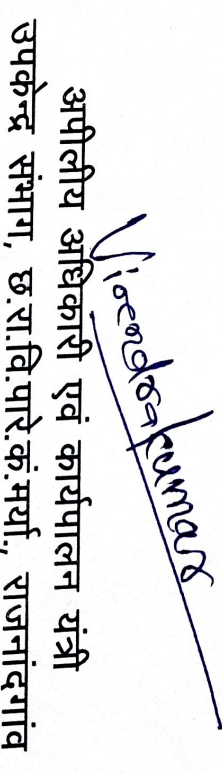 Virendra kumar
अपीलीय अधिकारी एवं कार्यपालन यंत्री
उपकेन्द्र संभाग, छ.रा.वि.पारे.कं.मर्या., राजनांदगांव